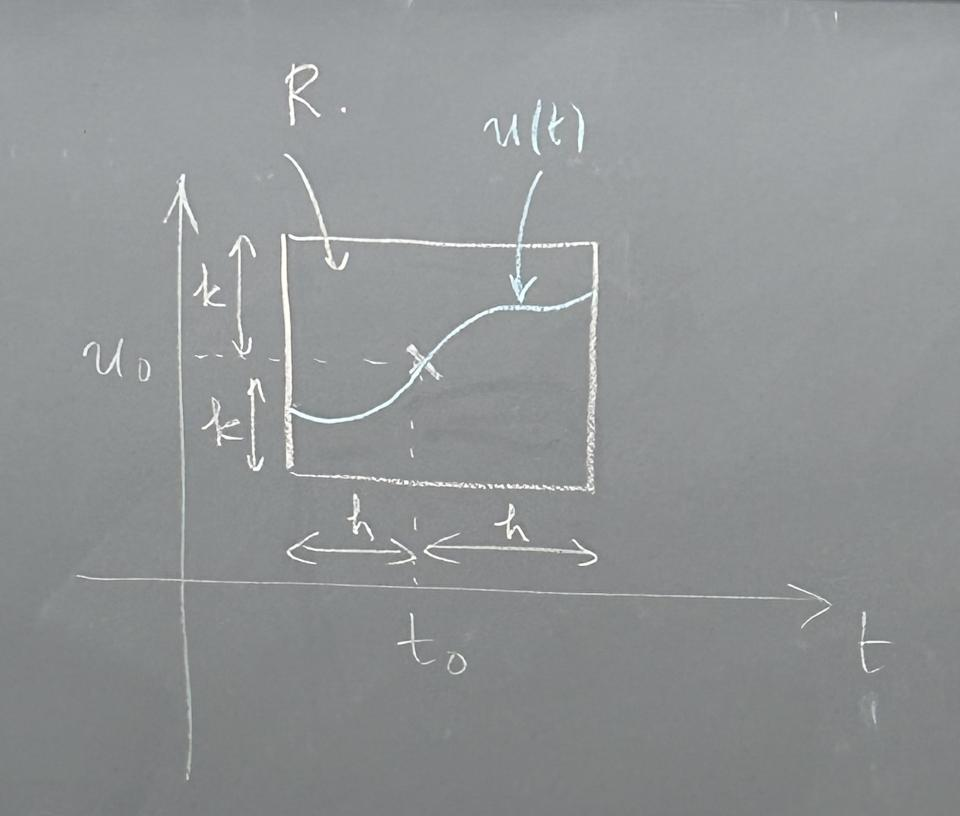 R.
u(t)
k
u₀
k
h
h
t₀
t